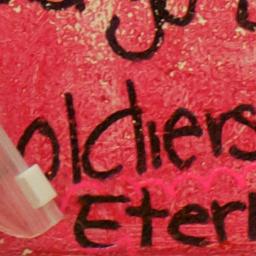 oldiers
Eter